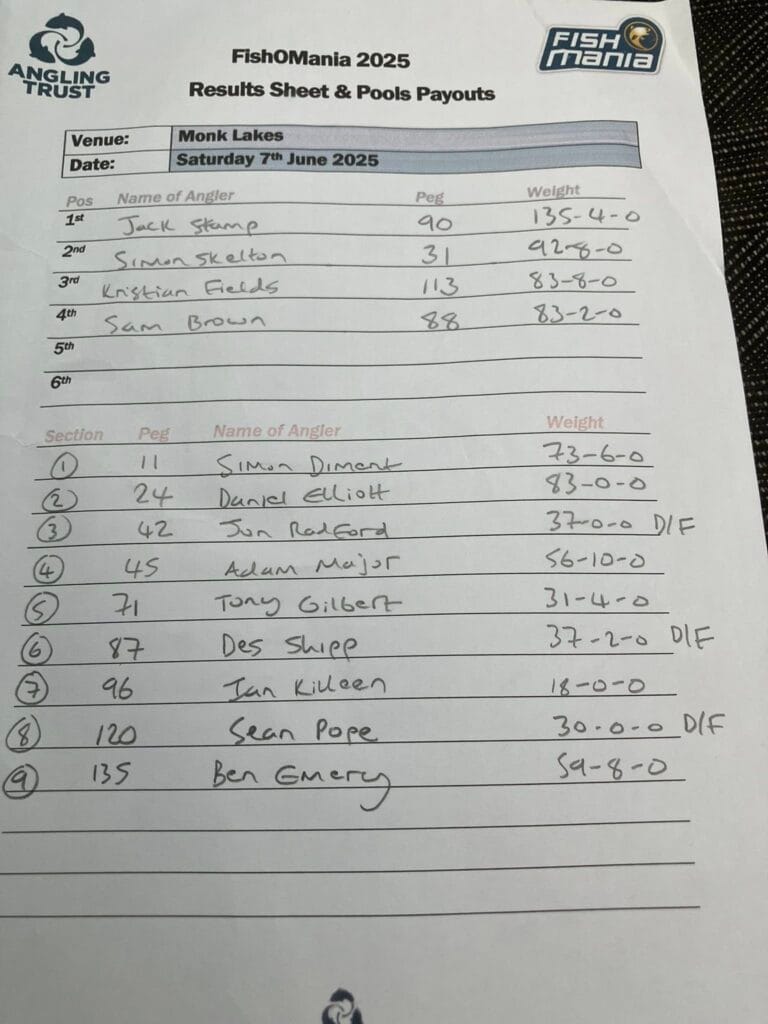 ANGLING
TRUST
FISH
mania
FishOMania 2025
Results Sheet & Pools Payouts
Venue: Monk Lakes
Date: Saturday 7th June 2025
Pos Name of Angler Peg Weight
1st Jack Stamp 90 135-4-0
2nd Simon Skelton 31 92-8-0
3rd Kristian Fields 113 83-8-0
4th Sam Brown 88 83-2-0
5th
6th
Section Peg Name of Angler Weight
1 11 Simon Diment 73-6-0
2 24 Daniel Elliott 83-0-0
3 42 Jon Radford 37-0-0 D/F
4 45 Adam Major 56-10-0
5 71 Tony Gilbert 31-4-0
6 87 Des Shipp 37-2-0 D/F
7 96 Ian Killeen 18-0-0
8 120 Sean Pope 30-0-0 D/F
9 135 Ben Emery 59-8-0